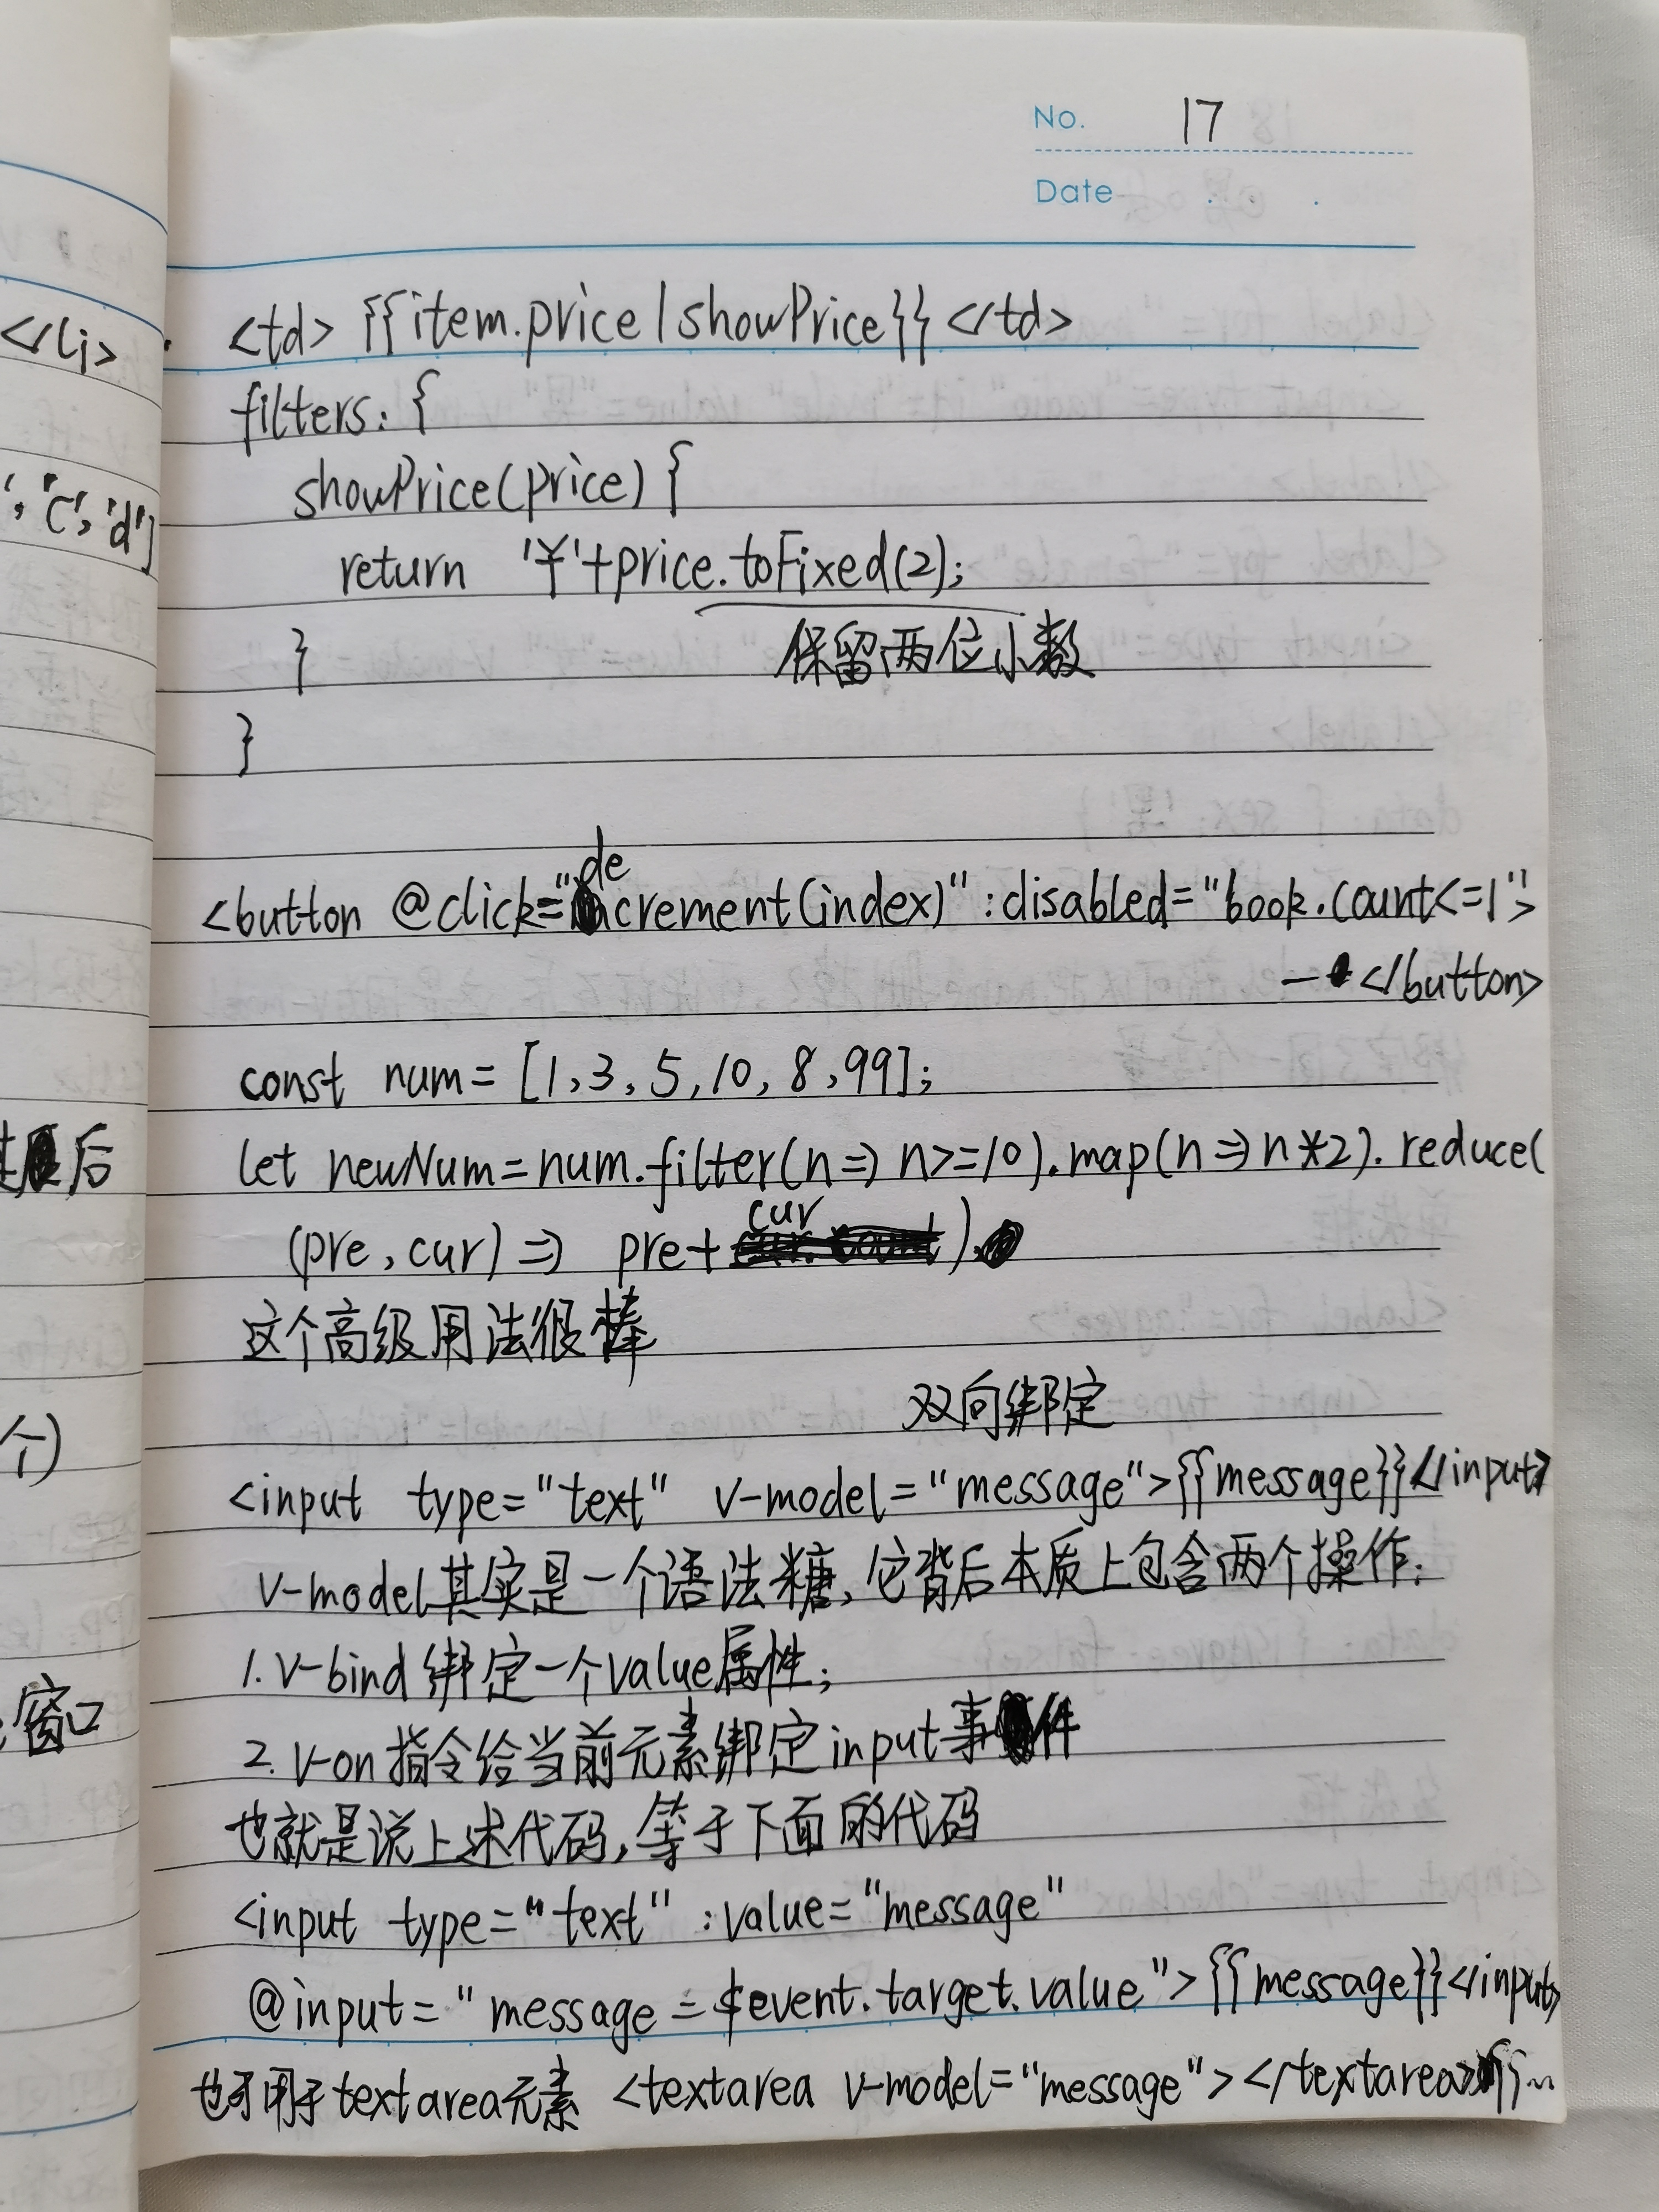 No. 17
Date
</li>
, 'c', 'd']
后
个)
窗口
<td> {{item.price | showPrice}} </td>
filters: {
showPrice(price) {
return '¥'+price.toFixed(2);
} 保留两位小数
}
<button @click="decrement(index)" :disabled="book.count<=1">
- </button>
const num = [1, 3, 5, 10, 8, 99];
let newNum = num.filter(n => n>=10).map(n => n*2).reduce(
(pre, cur) => pre + cur)
这个高级用法很棒
双向绑定
<input type="text" v-model="message">{{message}}</input>
v-model其实是一个语法糖,它背后本质上包含两个操作:
1. v-bind 绑定一个value属性;
2. v-on 指令给当前元素绑定input事件
也就是说上述代码,等于下面的代码
<input type="text" :value="message"
@input=" message = $event.target.value">{{message}}</input>
也可用于textarea元素 <textarea v-model="message"></textarea>